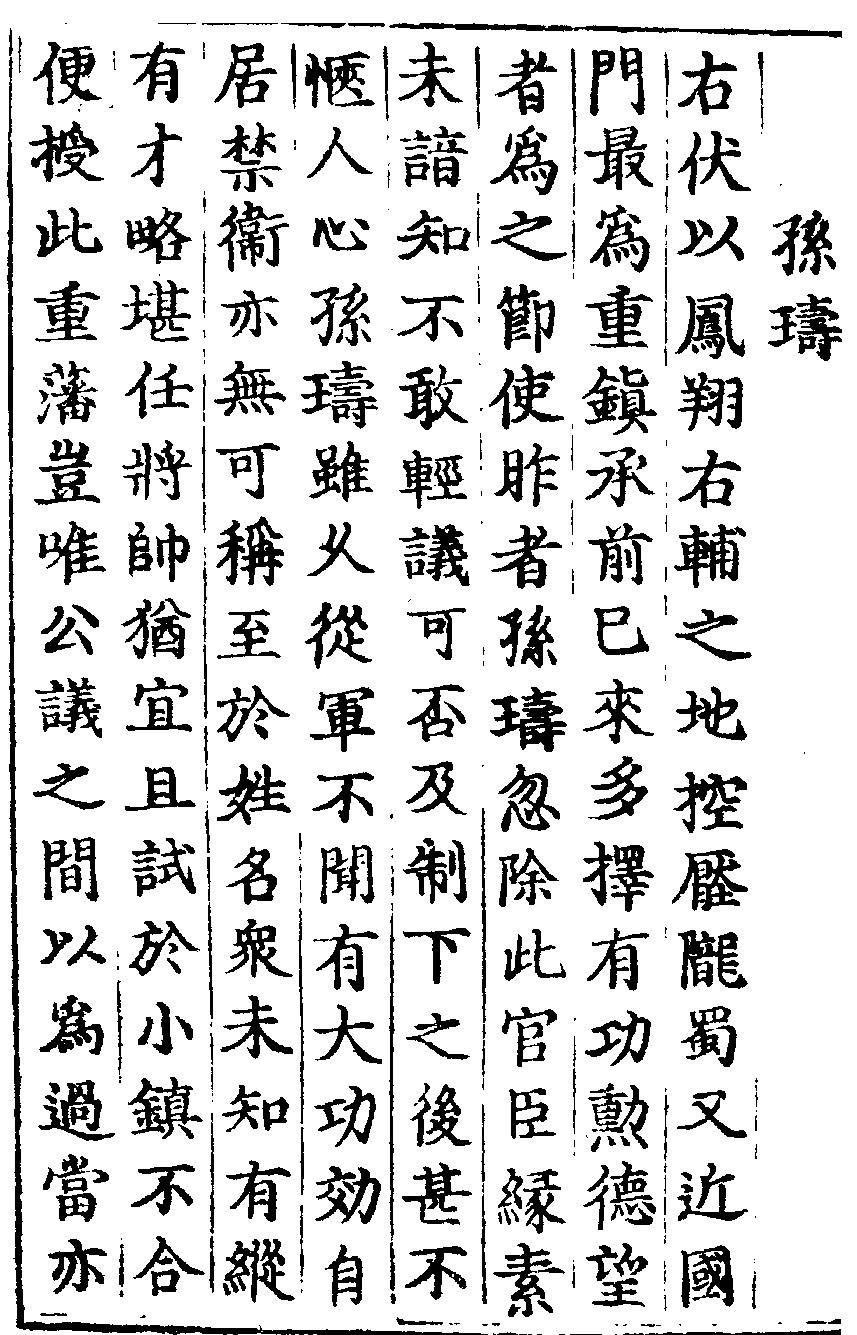 孫璹
右伏以鳳翔右輔之地控壓隴蜀又近國
門最爲重鎮承前已來多擇有功勲德望
者爲之節使昨者孫璹忽除此官臣縁素
未諳知不敢輕議可否及制下之後甚不
愜人心孫璹雖久從軍不聞有大功効自
居禁衛亦無可稱至於姓名衆未知有縱
有才略堪任將帥猶宜且試於小鎮不合
便授此重藩豈唯公議之間以爲過當亦